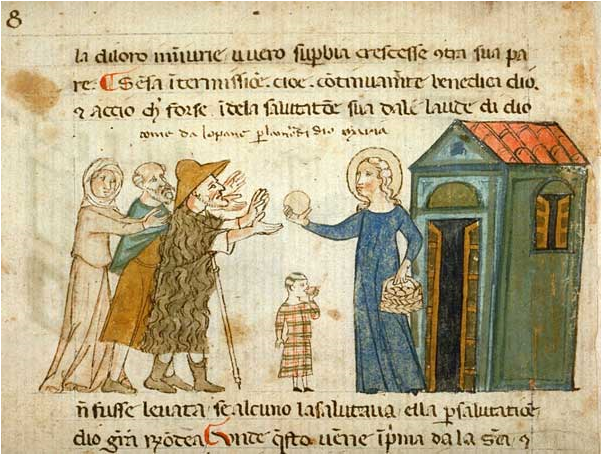 8
la diloro iniurie uuero supbia crescesse ɔtra sua pa
re. Sēsa ītermissiōe. cioe. cōtinuamēte benedici dio.
⁊ accio ch forse ī dela salutatōe sua dale laude di dio
come da lo pane p lamore di dio maria
n̄ fusse leuata. se alcuno la salutaua. ella p salutatiōe
dio gr̄a Onde q̄sto uene īpma da la sc̄a. ⁊